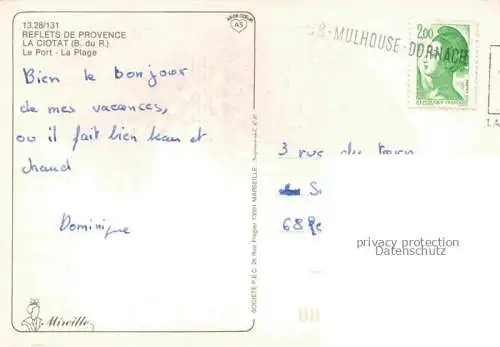 13.28/131
REFLETS DE PROVENCE
LA CIOTAT (B. du R.)
Le Port - La Plage
Bien le bonjour
de mes vacances,
ou il fait bien beau et
chaud
Dominique
Mireille
SOCIÉTÉ P.E.C. 26 Rue Pregier 13001 MARSEILLE
AS DE CŒUR
AS
68-MULHOUSE-DORNACH
2,00
LA
3 rue du
68
privacy protection
Datenschutz